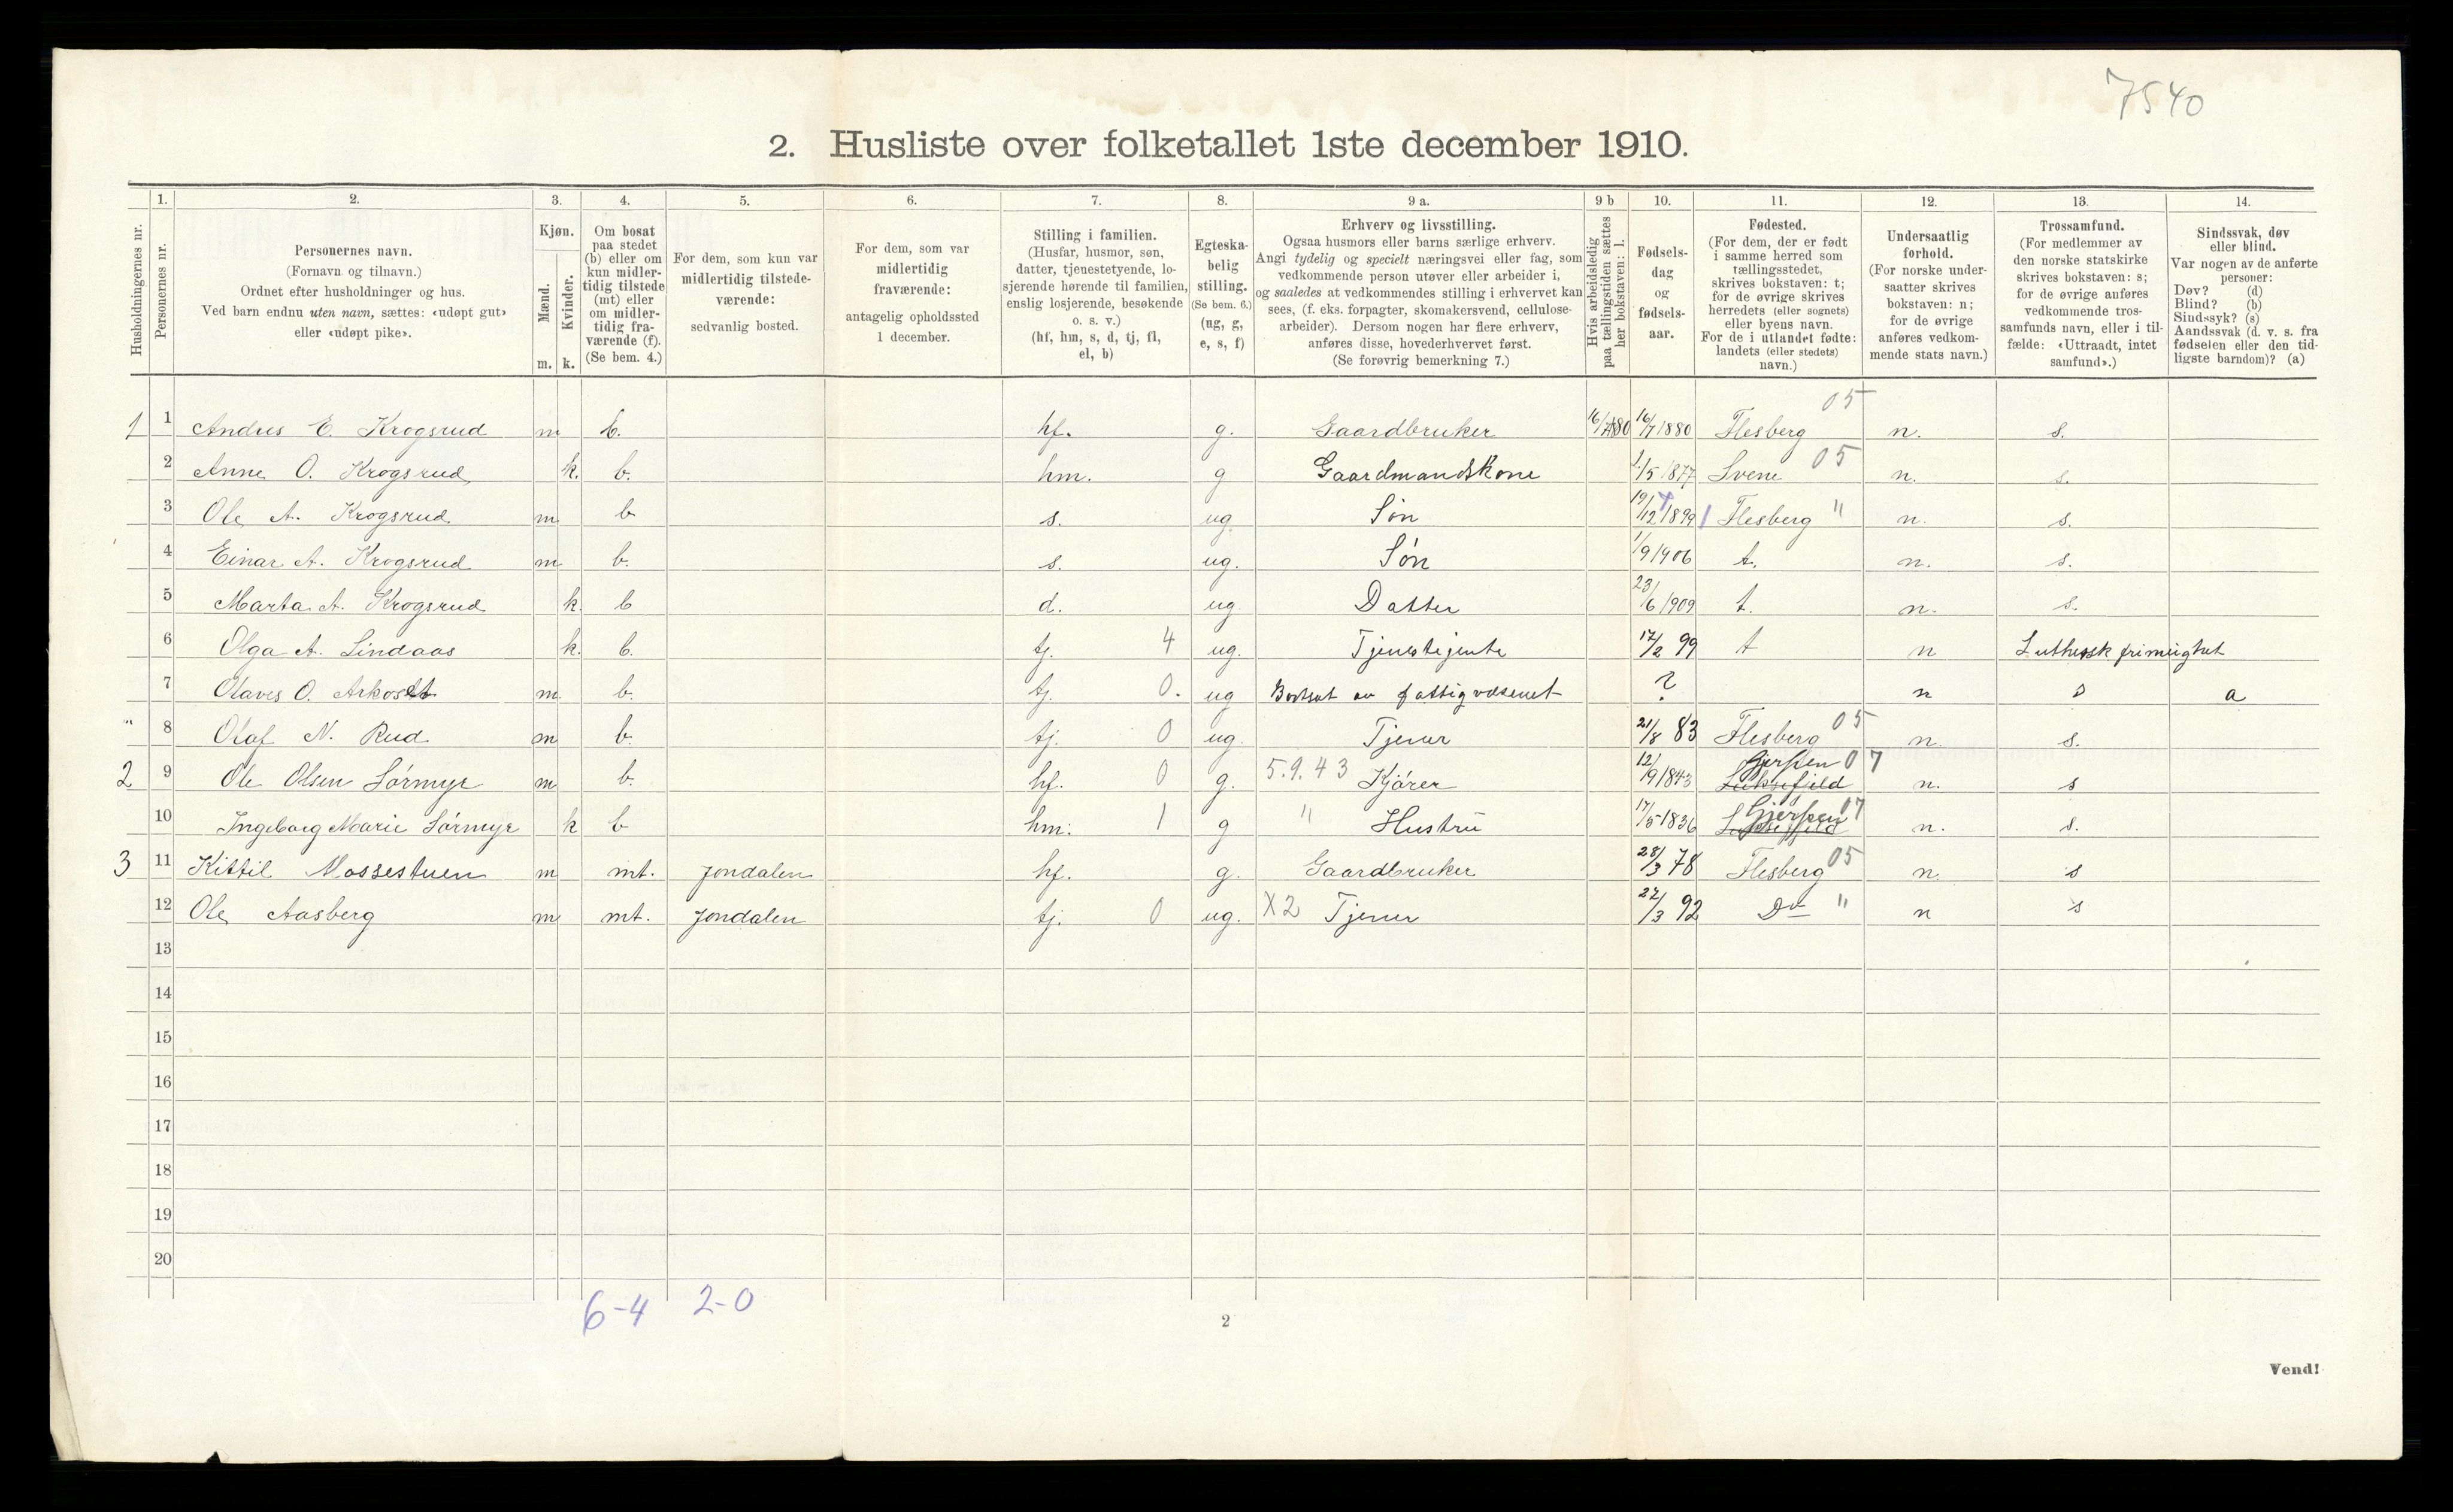 7540
2. Husliste over folketallet 1ste december 1910.
Husholdningernes nr.
1.
Personernes nr.
2.
Personernes navn.
(Fornavn og tilnavn.)
Ordnet efter husholdninger og hus.
Ved barn endnu uten navn, sættes: «udøpt gut»
eller «udøpt pike».
3.
Kjøn.
Mænd.
Kvinder.
m. k.
4.
Om bosat
paa stedet
(b) eller om
kun midler-
tidig tilstede
(mt) eller
om midler-
tidig fra-
værende (f).
(Se bem. 4.)
5.
For dem, som kun var
midlertidig tilstede-
værende:
sedvanlig bosted.
6.
For dem, som var
midlertidig
fraværende:
antagelig opholdssted
1 december.
7.
Stilling i familien.
(Husfar, husmor, søn,
datter, tjenestetyende, lo-
sjerende hørende til familien,
enslig losjerende, besøkende
o. s. v.)
(hf, hm, s, d, tj, fl,
el, b)
8.
Egteska-
belig
stilling.
(Se bem. 6.)
(ug, g,
e, s, f)
9 a.
Erhverv og livsstilling.
Ogsaa husmors eller barns særlige erhverv.
Angi tydelig og specielt næringsvei eller fag, som
vedkommende person utøver eller arbeider i,
og saaledes at vedkommendes stilling i erhvervet kan
sees, (f. eks. forpagter, skomakersvend, cellulose-
arbeider). Dersom nogen har flere erhverv,
anføres disse, hovederhvervet først.
(Se forøvrig bemerkning 7.)
9 b
Hvis arbeidsledig
paa tællingstiden sættes
her bokstaven: l.
10.
Fødsels-
dag
og
fødsels-
aar.
11.
Fødested.
(For dem, der er født
i samme herred som
tællingsstedet,
skrives bokstaven: t;
for de øvrige skrives
herredets (eller sognets)
eller byens navn.
For de i utlandet fødte:
landets (eller stedets)
navn.)
12.
Undersaatlig
forhold.
(For norske under-
saatter skrives
bokstaven: n;
for de øvrige
anføres vedkom-
mende stats navn.)
13.
Trossamfund.
(For medlemmer av
den norske statskirke
skrives bokstaven: s;
for de øvrige anføres
vedkommende tros-
samfunds navn, eller i til-
fælde: «Uttraadt, intet
samfund».)
14.
Sindssvak, døv
eller blind.
Var nogen av de anførte
personer:
Døv? (d)
Blind? (b)
Sindssyk? (s)
Aandssvak (d. v. s. fra
fødselen eller den tid-
ligste barndom)? (a)
1 1 Andres E. Krogsrud m b. hf. g. Gaardbruker 16/7 1880 Flesberg 05 n. s.
2 Anne O. Krogsrud k. b. hm. g Gaardmandskone 1/5 1877 Svene 05 n. s.
3 Ole A. Krogsrud m b s. ug Søn 19/12 1899 Flesberg " n. s.
4 Einar A. Krogsrud m b. s. ug. Søn 1/9 1906 t. n. s.
5 Marta A. Krogsrud k. b d. ug Datter 23/6 1909 t. n. s.
6 Olga A. Lindaas k. b. tj. 4 ug. Tjenestejente 17/2 99 t n Luthersk frimenighet
7 Olaves O. m. b. tj. 0. ug Bortsat av fattigvæsenet ? n s a
8 Olaf N. Rud m b. tj. 0 ug. Tjener 21/8 83 Flesberg 05 n. s.
2 9 Ole Olsen Sørmyr m b. hf. 0 g. 5.9.43 Kjører 12/9 1843 Gjerpen 07 n. s
10 Ingeborg Marie Sørmyr k b hm. 1 g " Hustru 17/5 1836 Gjerpen 07 n. s.
3 11 Kittil Mossestuen m mt. Jondalen hf. g. Gaardbruker 28/3 78 Flesberg 05 n. s
12 Ole Aasberg m mt. Jondalen tj. 0 ug. X2 Tjener 22/3 92 Do " n s
13
14
15
16
17
18
19
20
6-4 2-0
2
Vend!